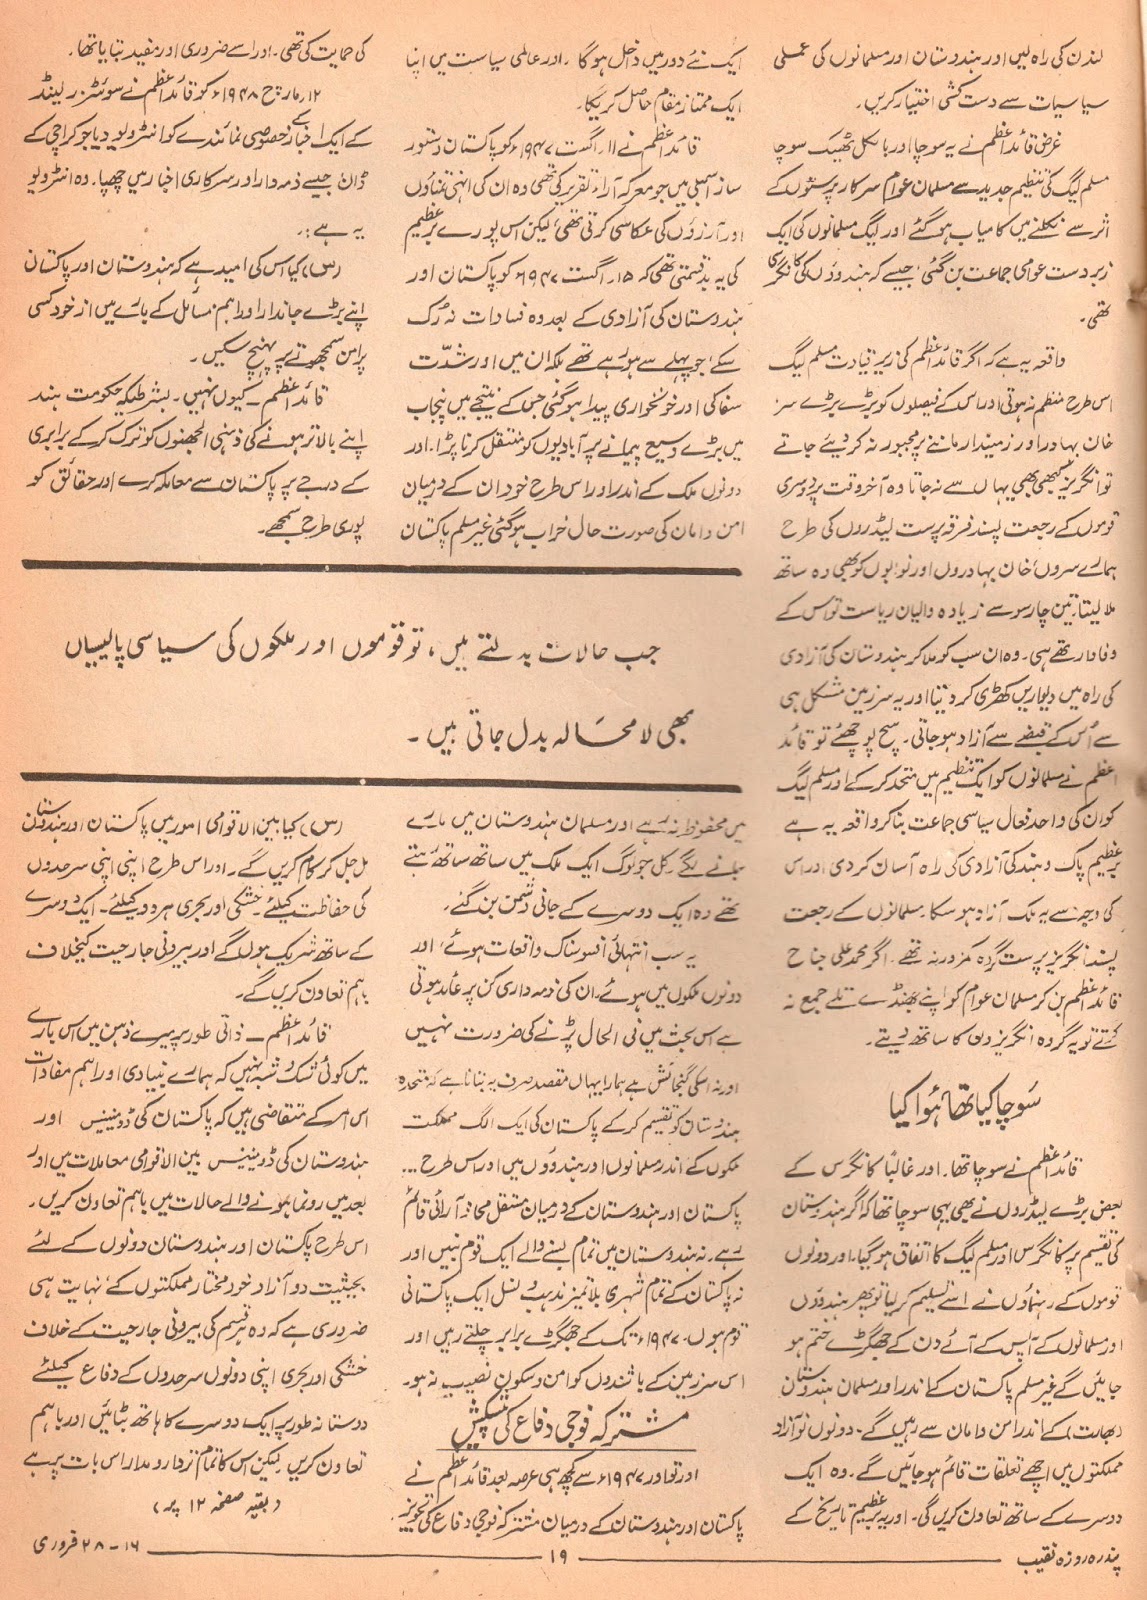 لندن کی راہ لیں اور ہندوستان اور مسلمانوں کی عملی
سیاسیات سے دست کشی اختیار کریں۔
غرض قائداعظم نے یہ سوچا اور بالکل ٹھیک سوچا
مسلم لیگ کی تنظیم جدید سے مسلمان عوام سرکار پرستوں کے
اثر سے نکلنے میں کامیاب ہوگئے اور لیگ مسلمانوں کی ایک
زبردست عوامی جماعت بن گئی، جیسے کہ ہندوؤں کی کانگریس
تھی۔
واقعہ یہ ہے کہ اگر قائداعظم کی زیر قیادت مسلم لیگ
اس طرح منظم نہ ہوتی اور اس کے فیصلوں کو بڑے بڑے سر
خان بہادر اور زمیندار ماننے پر مجبور نہ کر دیئے جاتے
تو انگریز کبھی بھی یہاں سے نہ جاتا وہ آخر وقت پر دوسری
قوموں کے رجعت پسند فرقہ پرست لیڈروں کی طرح
ہمارے سروں، خان بہادروں اور نوابوں کو بھی وہ ساتھ
ملا لیتا۔ تین چار سو سے زیادہ والیان ریاست تو اس کے
وفادار تھے ہی۔ وہ ان سب کو ملا کر ہندوستان کی آزادی
کی راہ میں دیواریں کھڑی کر دیتا اور یہ سرزمین مشکل ہی
سے اُس کے قبضے سے آزاد ہو جاتی۔ سچ پوچھئے تو قائد
اعظم نے مسلمانوں کو ایک تنظیم میں متحد کرکے اور مسلم لیگ
کو ان کی واحد فعال سیاسی جماعت بنا کر واقعہ یہ ہے
برعظیم پاک و ہند کی آزادی کی راہ آسان کر دی اور اس
کی وجہ سے یہ ملک آزاد ہو سکا۔ مسلمانوں کے رجعت
پسند انگریز پرست گروہ کمزور نہ تھے۔ اگر محمد علی جناح
قائداعظم بن کر مسلمان عوام کو اپنے جھنڈے تلے جمع نہ
کرتے تو یہ گروہ انگریزوں کا ساتھ دیتے۔
سوچا کیا تھا، ہوا کیا
قائداعظم نے سوچا تھا۔ اور غالباً کانگرس کے
بعض بڑے لیڈروں نے بھی یہی سوچا تھا کہ اگر ہندوستان
کی تقسیم پر کانگرس اور مسلم لیگ کا اتفاق ہوگیا۔ اور دونوں
قوموں کے رہنماؤں نے اسے تسلیم کر لیا تو پھر ہندوؤں
اور مسلمانوں کے آپس کے آئے دن کے جھگڑے ختم ہو
جائیں گے غیر مسلم پاکستان کے اندر اور مسلمان ہندوستان
(بھارت) کے اندر امن و امان سے رہیں گے۔ دونوں نو آزاد
مملکتوں میں اچھے تعلقات قائم ہو جائیں گے۔ وہ ایک
دوسرے کے ساتھ تعاون کریں گی۔ اور یہ برعظیم تاریخ کے
ایک نئے دور میں داخل ہوگا۔ اور عالمی سیاست میں اپنا
ایک ممتاز مقام حاصل کریگا۔
قائداعظم نے ۱۱؍ اگست ۱۹۴۷ء کو پاکستان دستور
ساز اسمبلی میں جو معرکہ آراء تقریر کی تھی وہ ان کی انہی تمناؤں
اور آرزوؤں کی عکاسی کرتی تھی، لیکن اس پورے برعظیم
کی یہ بدقسمتی تھی کہ ۱۵؍ اگست ۱۹۴۷ء کو پاکستان اور
ہندوستان کی آزادی کے بعد وہ فسادات نہ رُک
سکے، جو پہلے سے ہو رہے تھے بلکہ ان میں اور شدّت
سفاکی اور خونخواری پیدا ہوگئی جس کے نتیجے میں پنجاب
میں بڑے وسیع پیمانے پر آبادیوں کو منتقل کرنا پڑا۔ اور
دونوں ملک کے اندر اور اس طرح خود ان کے درمیان
امن و امان کی صورت حال خراب ہوگئی غیر مسلم پاکستان
کی حمایت کی تھی۔ اور اسے ضروری اور مفید بتایا تھا۔
۱۲؍ مارچ ۱۹۴۸ء کو قائداعظم نے سوئٹزرلینڈ
کے ایک اخبار کے خصوصی نمائندے کو انٹرویو دیا جو کراچی کے
ڈان جیسے ذمہ دار اور سرکاری اخبار میں چھپا۔ وہ انٹرویو
یہ ہے:۔
(س) کیا اس کی امید ہے کہ ہندوستان اور پاکستان
اپنے بڑے جاندار اور اہم مسائل کے بارے میں از خود کسی
پرامن سمجھوتے پر پہنچ سکیں۔
قائداعظم ۔ کیوں نہیں۔ بشرطیکہ حکومت ہند
اپنے بالاتر ہونے کی ذہنی الجھنوں کو ترک کرکے برابری
کے درجے پر پاکستان سے معاملہ کرے اور حقائق کو
پوری طرح سمجھے۔
جب حالات بدلتے ہیں، تو قوموں اور ملکوں کی سیاسی پالیسیاں
بھی لا محالہ بدل جاتی ہیں۔
میں محفوظ نہ رہے اور مسلمان ہندوستان میں مارے
جانے لگے کل جو لوگ ایک ملک میں ساتھ ساتھ رہتے
تھے وہ ایک دوسرے کے جانی دشمن بن گئے۔
یہ سب انتہائی افسوسناک واقعات ہوئے، اور
دونوں ملکوں میں ہوئے۔ ان کی ذمہ داری کن پر عائد ہوتی
ہے اس بحث میں فی الحال پڑنے کی ضرورت نہیں
اور نہ اسکی گنجائش ہے ہمارا یہاں مقصد صرف یہ بتانا ہے کہ متحدہ
ہندوستان کو تقسیم کرکے پاکستان کی ایک الگ مملکت
ملکوں کے اندر مسلمانوں اور ہندوؤں میں اور اس طرح ...
پاکستان اور ہندوستان کے درمیان مستقل محاذ آرائی قائم
رہے۔ نہ ہندوستان میں تمام بسنے والے ایک قوم بنیں اور
نہ پاکستان کے تمام شہری بلاتمیز مذہب و نسل ایک پاکستانی
قوم ہوں۔ ۱۹۴۷ء تک کے جھگڑے برابر چلتے رہیں اور
اس سرزمین کے باشندوں کو امن و سکون نصیب نہ ہو۔
مشترکہ فوجی دفاع کی پیشکش
اور تو اور ۱۹۴۷ء سے کچھ ہی عرصہ بعد قائداعظم نے
پاکستان اور ہندوستان کے درمیان مشترکہ فوجی دفاع کی تجویز
(س) کیا بین الاقوامی امور میں پاکستان اور ہندوستان
مل جل کر کام کریں گے۔ اور اس طرح اپنی اپنی سرحدوں
کی حفاظت کیلئے۔ خشکی اور بحری ہر دو کیلئے۔ ایک دوسرے
کے ساتھ شریک ہوں گے اور بیرونی جارحیت کیخلاف
باہم تعاون کریں گے۔
قائداعظم ۔ ذاتی طور پر میرے ذہن میں اس بارے
میں کوئی شک و شبہ نہیں کہ ہمارے بنیادی اور اہم مفادات
اس امر کے متقاضی ہیں کہ پاکستان کی ڈومینیس اور
ہندوستان کی ڈومینیس بین الاقوامی معاملات میں اور
بعد میں رونما ہونے والے حالات میں باہم تعاون کریں۔
اس طرح پاکستان اور ہندوستان دونوں کے لئے
بحیثیت دو آزاد خود مختار مملکتوں کے، نہایت ہی
ضروری ہے کہ وہ ہر قسم کی بیرونی جارحیت کے خلاف
خشکی اور بحری اپنی دونوں سرحدوں کے دفاع کیلئے
دوستانہ طور پر ایک دوسرے کا ہاتھ بٹائیں اور باہم
تعاون کریں۔ لیکن اس کا تمام تر دارومدار اس بات پر ہے
(بقیہ صفحہ ۱۲ پر)
پندرہ روزہ نقیب
۱۹
۱۶-۲۸ فروری